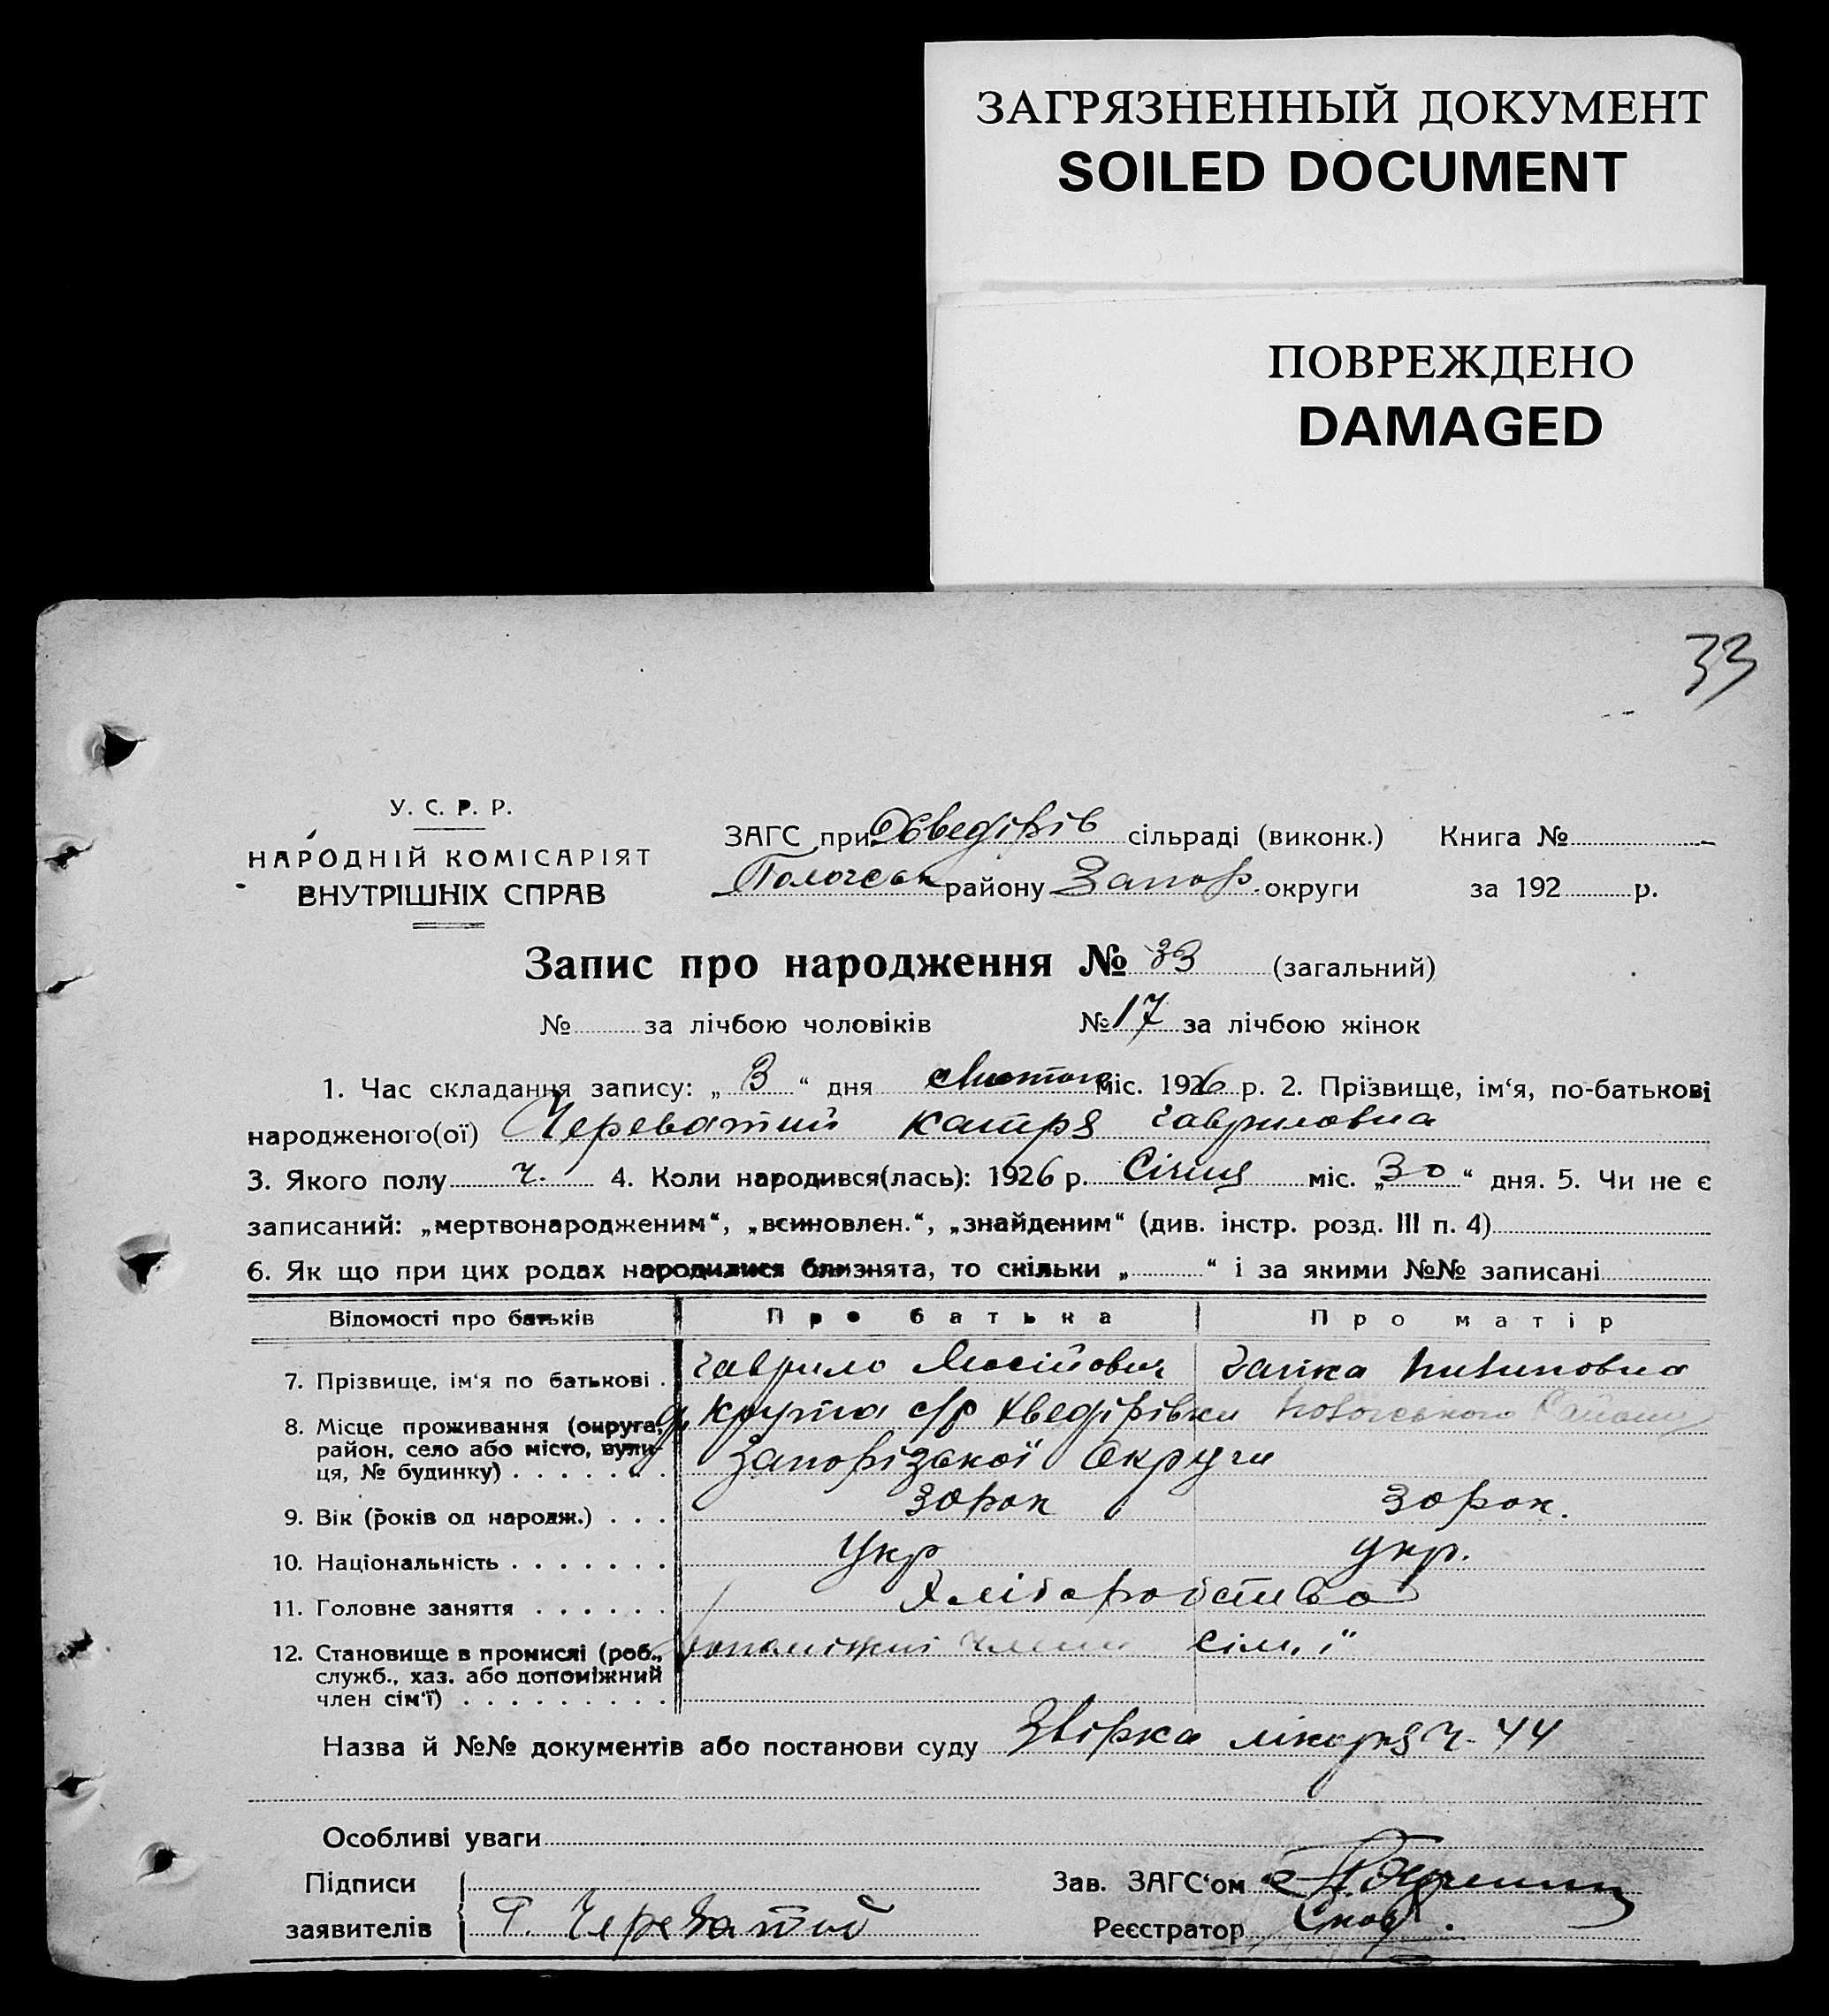 ЗАГРЯЗНЕННЫЙ ДОКУМЕНТ
SOILED DOCUMENT
ПОВРЕЖДЕНО
DAMAGED
33
У. С. Р. Р.
НАРОДНІЙ КОМІСАРІЯТ
ВНУТРІШНІХ СПРАВ
ЗАГС при Хведірів сільраді (виконк.) Книга №
Пологськ району Запор. округи за 192 р.
Запис про народження № 33 (загальний)
№ за лічбою чоловіків № 17 за лічбою жінок
1. Час складання запису: „ 3 “ дня Лютого міс. 1926 р. 2. Прізвище, ім‘я, по-батькові
народженого(ої) Череватий Катря Гавриловна
3. Якого полу ч. 4. Коли народився(лась): 1926 р. Січня міс. „ 30 “ дня. 5. Чи не є
записаний: „мертвонародженим“, „всиновлен.“, „знайденим“ (див. інстр. розд. III п. 4)
6. Як що при цих родах народилися близнята, то скільки „ “ і за якими №№ записані
Відомості про батьків Про батька Про матір
7. Прізвище, ім‘я по батькові . Гаврило Мусійович
8. Місце проживання (округа, район, село або місто, вулиця, № будинку) . . . . . . . Крута с/р Хведірівки Пологського Району
Запорізької Округи
9. Вік (років од народж.) . . . 30 рок 30 рок.
10. Національність . . . . . . . Укр укр.
11. Головне заняття . . . . . . Хліборобство
12. Становище в промислі (роб., служб., хаз. або допоміжний член сім‘ї) . . . . . . . . . допоміжні члени сім,ї
Назва й №№ документів або постанови суду Звірка лікаря ч. 44
Особливі уваги
Підписи
заявителів Г. Череватий
Зав. ЗАГС‘ом
Реєстратор